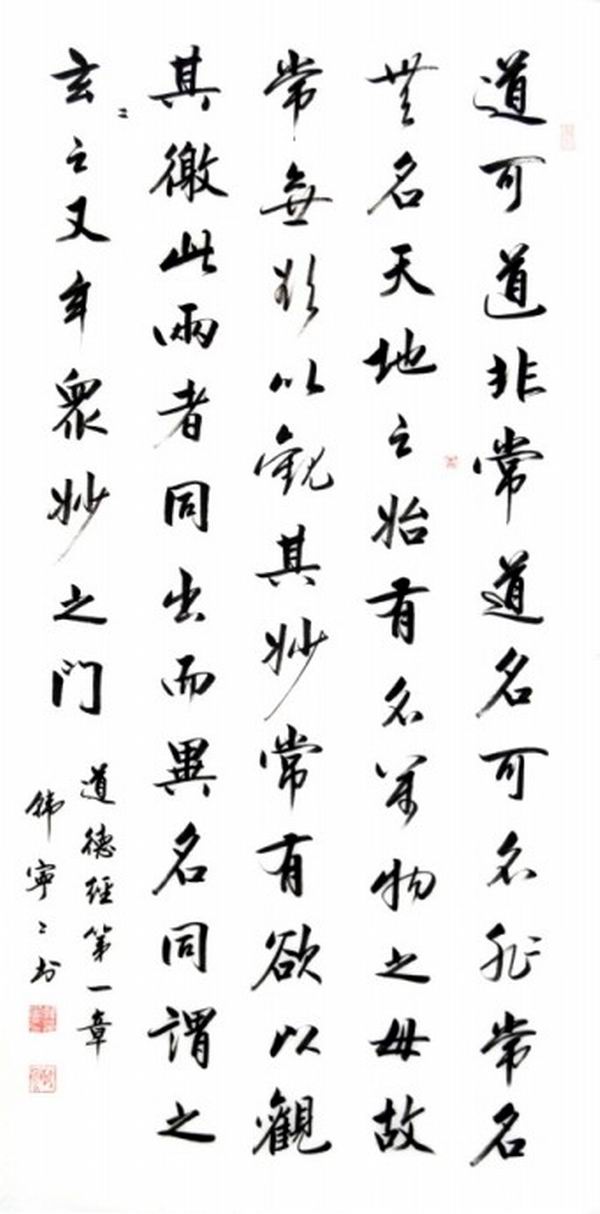 道可道非常道名可名非常名
無名天地之始有名萬物之母故
常無欲以觀其妙常有欲以觀
其徼此兩者同出而異名同謂之
玄〻之又玄眾妙之門
道德經第一章
韓寧〻书